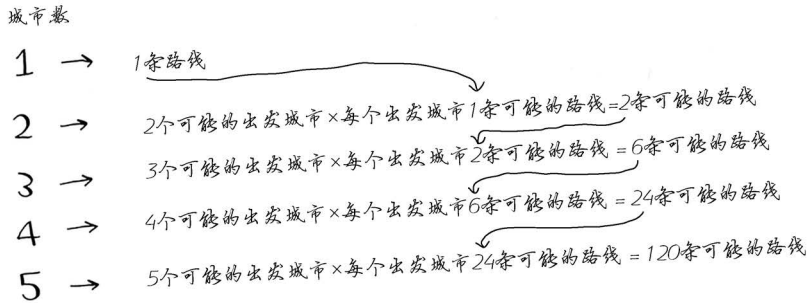 城市数
1 → 1条路线
2 → 2个可能的出发城市×每个出发城市1条可能的路线=2条可能的路线
3 → 3个可能的出发城市×每个出发城市2条可能的路线=6条可能的路线
4 → 4个可能的出发城市×每个出发城市6条可能的路线=24条可能的路线
5 → 5个可能的出发城市×每个出发城市24条可能的路线=120条可能的路线